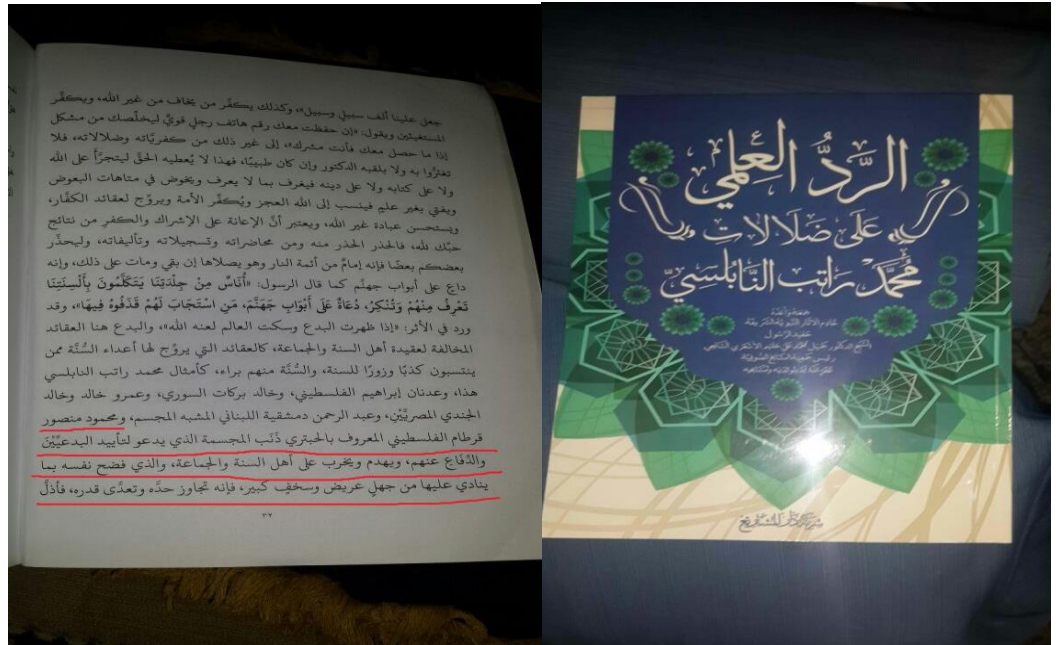 جعل علينا ألف سبيلٍ وسبيل»، وكذلك يكفّر من يخاف من غير الله، ويكفّر
المستغيثين ويقول: «إن حفظت معك رقم هاتف رجلٍ قويٍّ ليخلّصك من مشكل
إذا ما حصل معك فأنت مشرك»، إلى غير ذلك من كفريّاته وضلالاته، فلا
تغترُّوا به ولا بلقبه الدكتور وإن كان طبيبًا، فهذا لا يُعطيه الحقَّ ليتجرَّأ على الله
ولا على كتابه ولا على دينه فيغرف بما لا يعرف ويخوض في متاهات البعوض
ويفتي بغير علمٍ فينسب إلى الله العجز ويُكفّر الأمة ويروّج لعقائد الكفَّار،
ويستحسن عبادة غير الله، ويعتبر أنَّ الإعانة على الإشراك والكفر من نتائج
حبّك لله، فالحذر الحذر منه ومن محاضراته وتسجيلاته وتأليفاته، وليحذّر
بعضكم بعضًا فإنه إمامٌ من أئمة النار وهو يصلاها إن بقي ومات على ذلك، وإنه
داعٍ على أبواب جهنَّم كما قال الرسول: «أُنَاسٌ مِنْ جِلْدَتِنَا يَتَكَلَّمُونَ بِأَلْسِنَتِنَا
تَعْرِفُ مِنْهُمْ وَتُنْكِرُ، دُعَاةٌ عَلَى أَبْوَابِ جَهَنَّمَ، مَنِ اسْتَجَابَ لَهُمْ قَذَفُوهُ فِيهَا»، وقد
ورد في الأثر: «إذا ظهرت البدع وسكت العالم لعنه الله»، والبدع هنا العقائد
المخالفة لعقيدة أهل السنة والجماعة، كالعقائد التي يروّج لها أعداء السُّنَّة ممن
ينتسبون كذبًا وزورًا للسنة، والسُّنَّة منهم براء، كأمثال محمد راتب النابلسي
هذا، وعدنان إبراهيم الفلسطيني، وخالد بركات السوري، وعمرو خالد وخالد
الجندي المصريَّيْن، وعبد الرحمن دمشقية اللبناني المشبه المجسم، ومحمود منصور
قرطام الفلسطيني المعروف بالحبتري ذَنَب المجسمة الذي يدعو لتأييد البدعيِّيْنَ
والدِّفَاع عنهم، ويهدم ويخرب على أهل السنة والجماعة، والذي فضح نفسه بما
ينادي عليها من جهلٍ عريض وسخفٍ كبير، فإنه تجاوز حدَّه وتعدَّى قدره، فأذلَّ
٣٢
الرَّدُّ العِلمِيُّ
عَلَى ضَلَالَاتِ
مُحَمَّد رَاتِب النَّابُلسِيّ
جمعه وأعده
خادم الآثار النبوية الشريفة
حفيد الرسول
الشيخ الدكتور جميل محمد علي حليم الأشعري الشافعي
رئيس جمعية المشايخ الصوفية
غفر الله له ولوالديه ومشايخه
شركة دار المشاريع